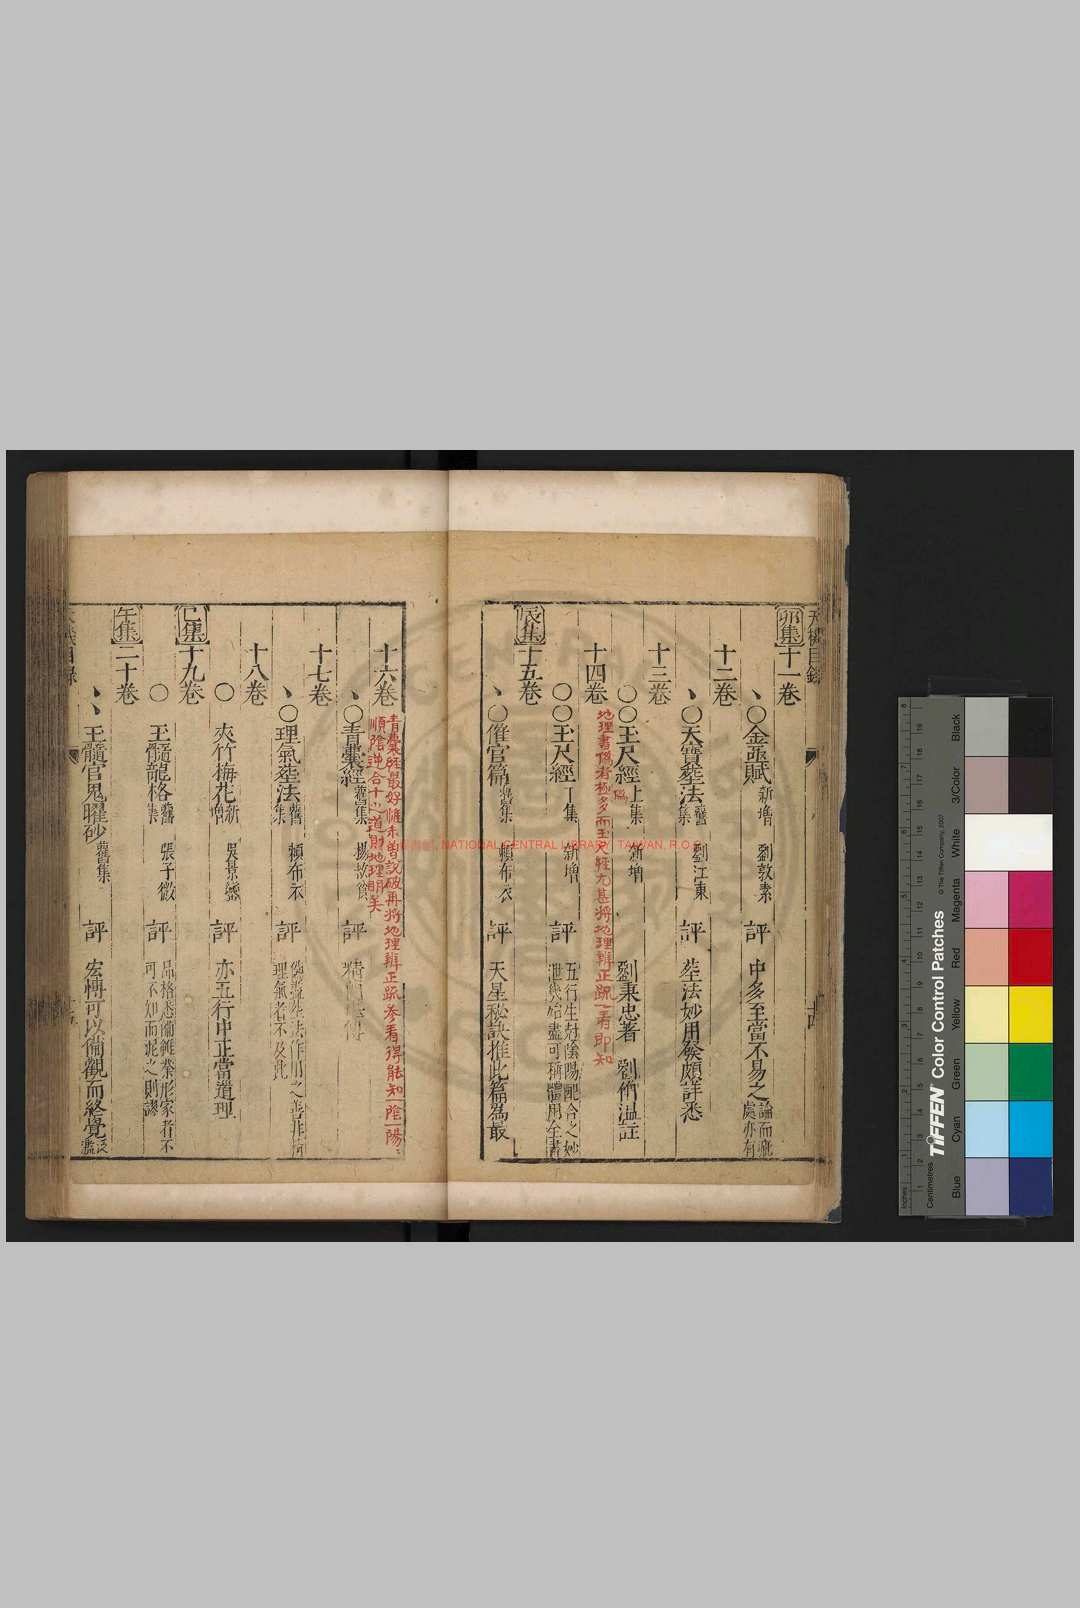 卯集
十一卷
金函賦 新增 劉敦素 評 中多至當不易之論而疵處亦有
十二卷
天寶葬法 舊集 劉江東 評 葬法妙用發頗詳悉
十三卷
玉尺經上集 新增 劉秉忠著 劉伯溫註
地理書偽者極多而玉尺經尤甚將地理辨正疏一看即知
十四卷
玉尺經下集 新增 評 五行生尅陰陽配合之妙泄幾殆盡可稱體用全書
辰集
十五卷
催官篇 舊集 賴布衣 評 天星秘訣推此篇為最
十六卷
青囊經最好惟未曾說破再將地理辨正疏參看得能知一陰一陽
順陰逆合十之道則地理明矣
青囊經 舊集 楊救貧 評
十七卷
理氣葬法 舊集 賴布衣 評 理氣者不及此
十八卷
夾竹梅花 新增 吳景鸞 評 亦五行中正當道理
巳集
十九卷
玉髓龍格 舊集 張子微 評 品格悉備雖業形家者不可不知而泥之則謬
午集
二十卷
玉髓官鬼曜砂 舊集 評 宏博可以備觀而終覺泛濫
NATIONAL CENTRAL LIBRARY, TAIWAN, R.O.C.
TIFFEN Color Control Patches
© The Tiffen Company, 2007
Inches
Centimetres
Blue
Cyan
Green
Yellow
Red
Magenta
White
3/Color
Black